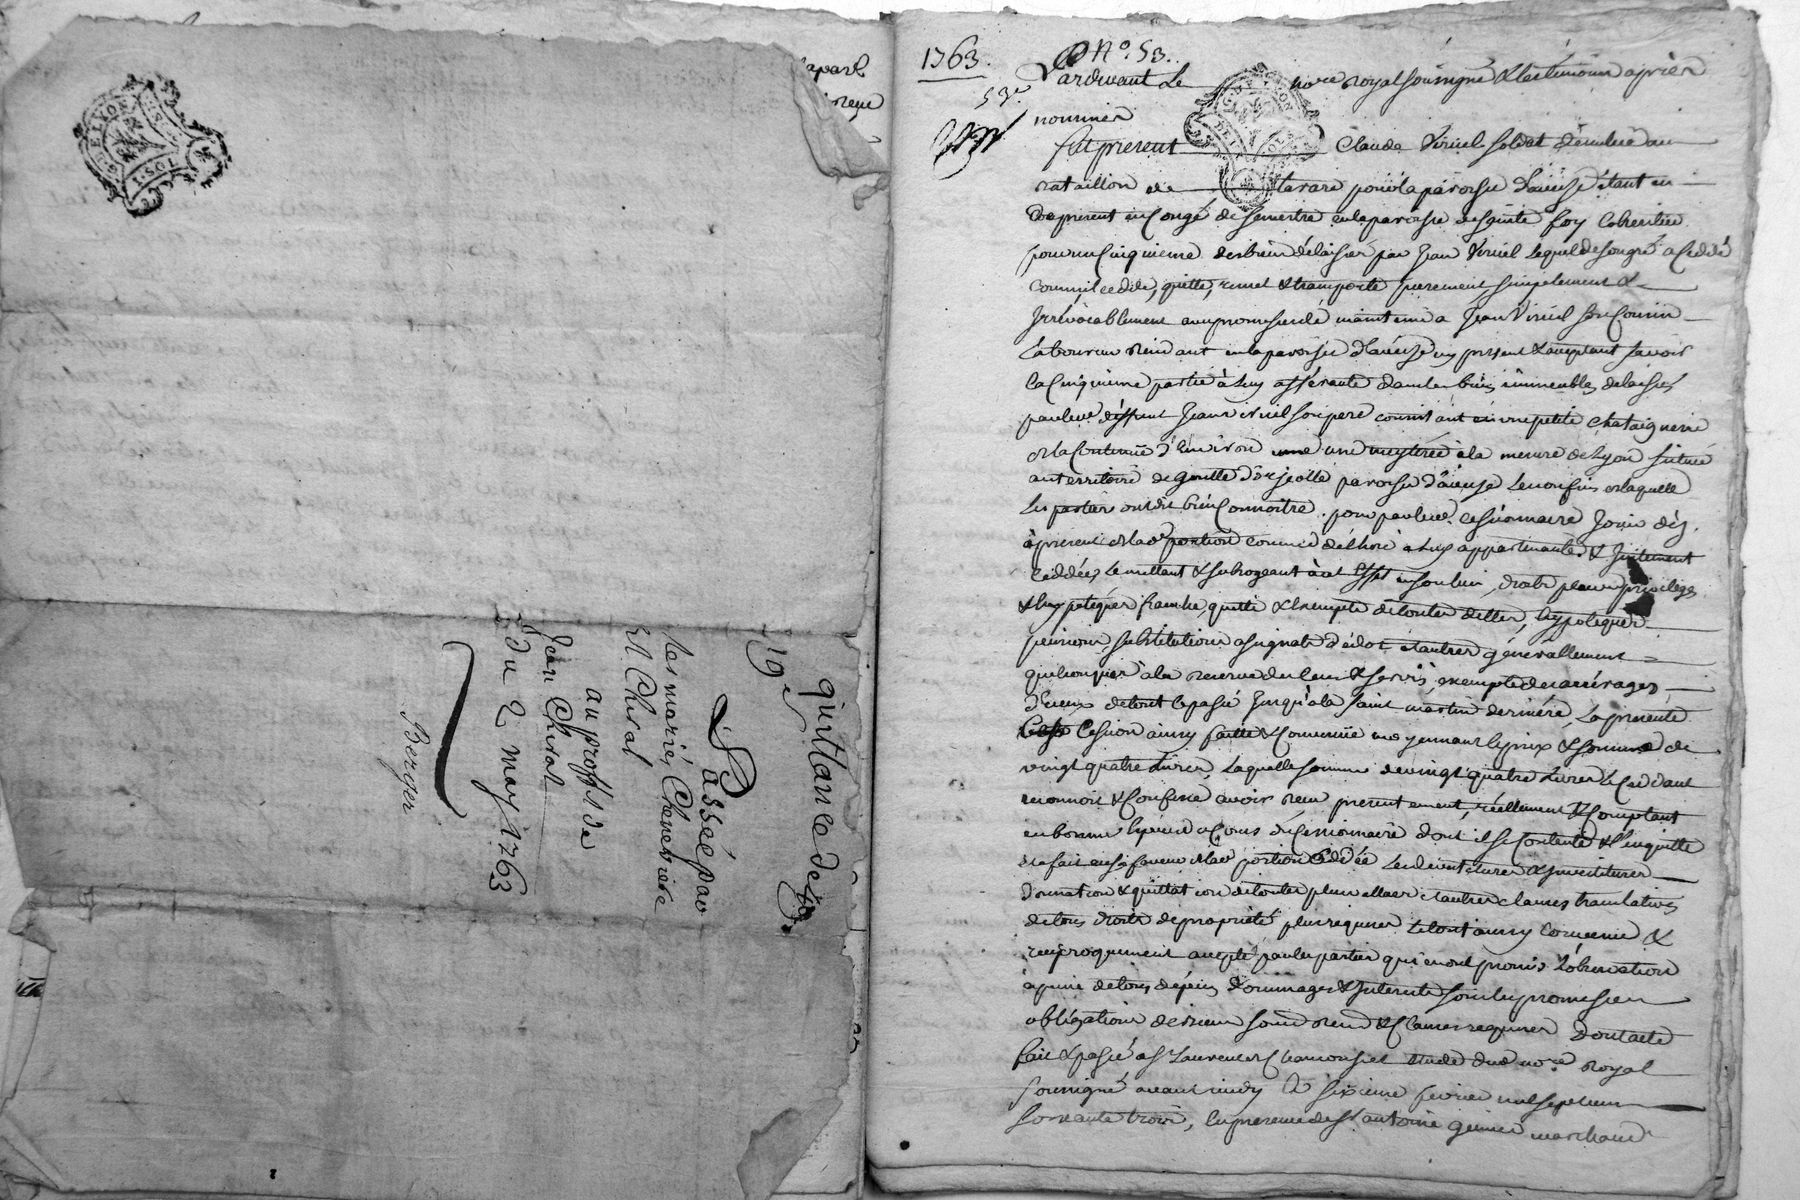 quittance de 
19ᵉ
Passée par
les mariés Chenevriere
et Chirat
au proffit de
Jean Chirat
du 2 may 1763
Berger
GEN. LYON
1. SOL
1763.
N° 53.
53ᵉ
Pardevant Le noʳᵉ royal soussigné & les témoins après
nommés
fut present Claude Viricel soldat
bataillon de tarare pour la paroisse d'aveize étant en
present en Congé de semestre en la paroisse de sainte foy Coheritier
pour un Cinquieme des biens délaissés par Jean Viricel Lequel de son gré a Ceddé
comme il cedde, quitte, remet & transporte purement simplement &
Irrévocablement avec promesse de maintenir a Jean Viricel son Cousin
Laboureur residant en la paroisse d'aveize icy present & acceptant savoir
la Cinquieme partie à luy afférante dans les biens immeubles delaissés
par led. deffunt Jean Viricel son pere consistant en une petite chataigneraie
de la Contenue d'Environ une meyterée à la mesure de Lyon située
au territoire de paroisse d'aveize Les confins de laquelle
les parties ont dit bien Connoitre. pour par led. cessionnaire Jouir dès
à present de lad. portion comme de chose a luy appartenante & justement
ceddée, le mettant & subrogeant à cet effet en son lieu, droits, place, privileges
& hypotéques franche, quitte & exempte de toutes dettes, hypoteques
pensions, substitutions assignats d'édot & autres générallement
quelconques à la reserve du Cens & servis, exempte des arrérages
d'iceux de tout le passé Jusqu'à la saint martin derniére, La presente
Cession ainsy faitte & Convenue moyennant le prix & somme de
vingt quatre Livres, Laquelle somme de vingt quatre Livres le Ceddant
reconnoit & Confesse avoir reçu presentement, réellement & Comptant
en bonnes Espéces a Cours du Cessionnaire dont il se Contente & l'en quitte
& a fait en sa faveur de lad. portion Ceddée Les devestitures & investitures
donnation & quittation de toutes plus values & autres clauses translatives
de tous droits de proprieté plus requises Le tout ainsy convenu &
reciproquement accepté par les parties qui en ont promis L'observation
à peine de tous dépens dommages & Interets sous les promesses
obligations de biens soumd. renon. & Clauses requises Dont acte
fait & passé a St Laurent de Chamousset etude dud. noʳᵉ Royal
soussigné avant midy le sixieme fevrier mil sept cent
soixante trois, en presence de sʳ antoine marchand